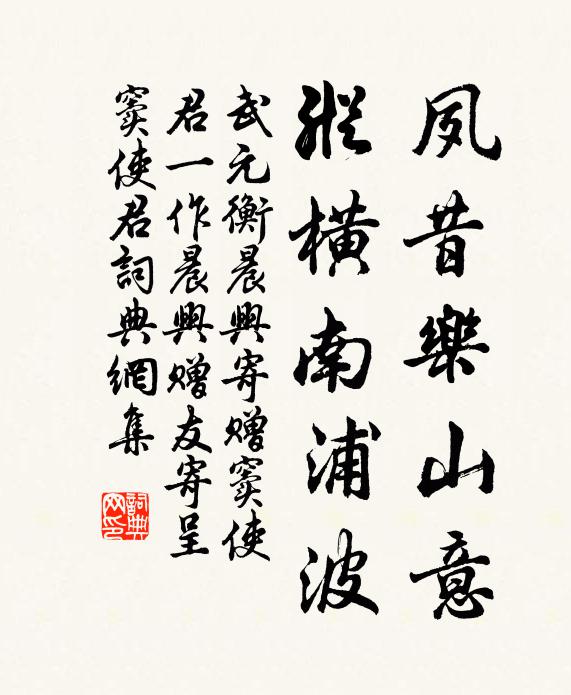 夙昔樂山意
縱橫南浦波
武元衡晨興寄贈竇使
君一作晨興贈友寄呈
竇使君詞典網集
詞典
网印